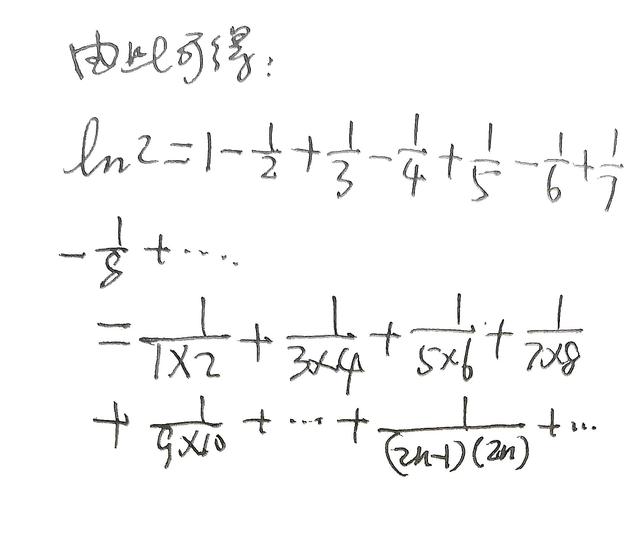 由此可得:
ln2=1-1/2+1/3-1/4+1/5-1/6+1/7
-1/8+·····
=1/(1×2)+1/(3×4)+1/(5×6)+1/(7×8)
+1/(9×10)+···+1/((2n-1)(2n))+···